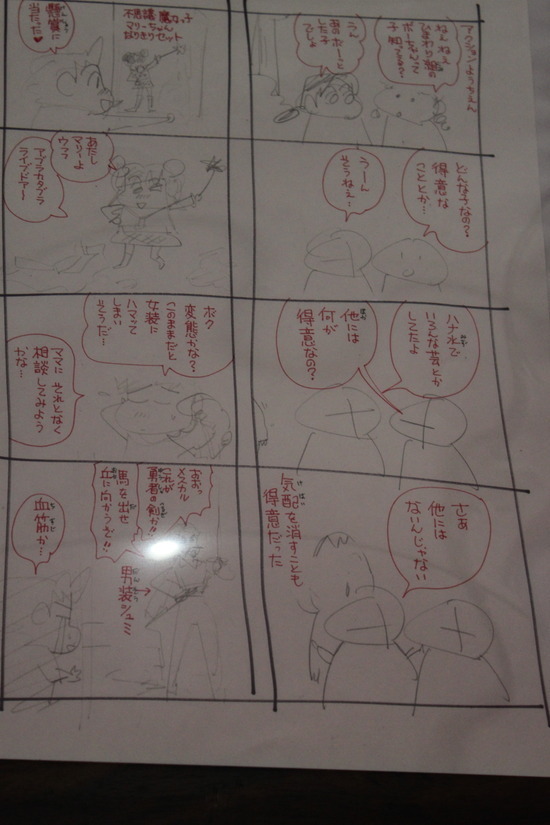 アクションようちえん
ねんねぇ
ひまわり組の
ボーちゃんって
子知ってる?
うん
あのボーっと
した子
でしょ
どんな子なの?
得意な
こととか…
うーん
そうねぇ…
ハナ水で
いろんな芸とか
してたよ
他には
何が
得意なの?
さぁ
他には
ないんじゃない
気配を消すことも
得意だった
不思議魔女っ子
マリーちゃん
なりきりセット
懸賞に
当たった♥
あたし
マリーよ
ウフフ
アブラカタブラ
ライブドアー
ボク
変態かな?
このままだと
女装に
ハマって
しまい
そうだ…
ママにそれとなく
相談してみよう
かな…
おおっ
メスカル
これが
勇者の剣か!!
馬を出せ
丘に向かうぞ!!
男装シュミ
血筋か…